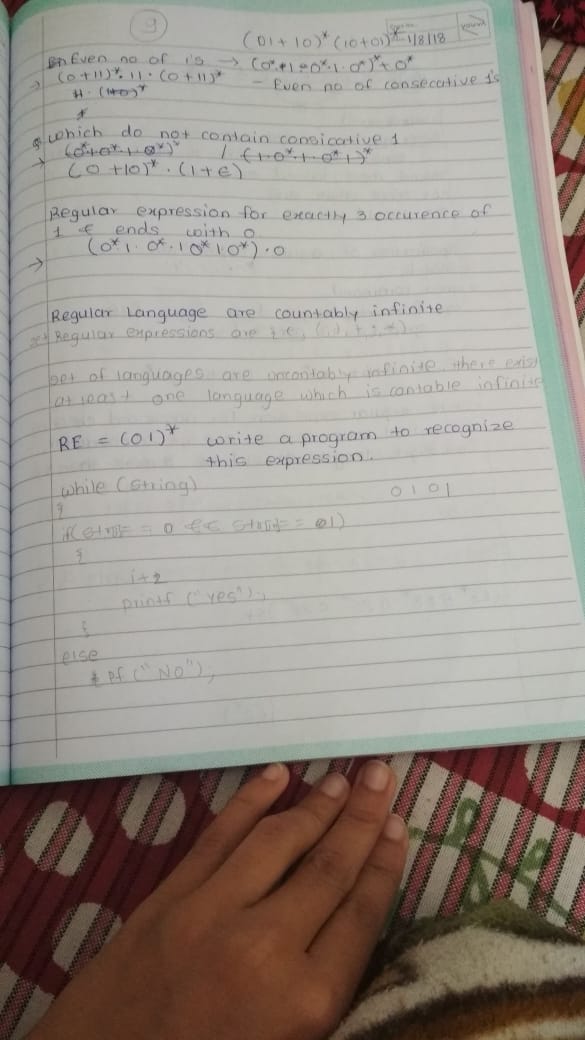 9
(01 + 10)* (10+01)* 1/8/18
Even no of 1's → (0* 1 0* . 1 . 0*)* + 0*
→ (0+11)* . 11 . (0+11)* - Even no of consecative 1's
which do not contain consicative 1
→ (0 + 10)* . (1 + ε)
Regular expression for exactly 3 occurence of
1 & ends with 0
→ (0* 1 . 0* . 1 0* 1 0*) . 0
Regular Language are countably infinite
Regular expressions are
set of languages are uncontably infinite there exist
at least one language which is contable infinite
RE = (01)* write a program to recognize
this expression.
while (string) 0 1 0 1
{
{
i+2
printf ("yes");
}
else
pf ("No");